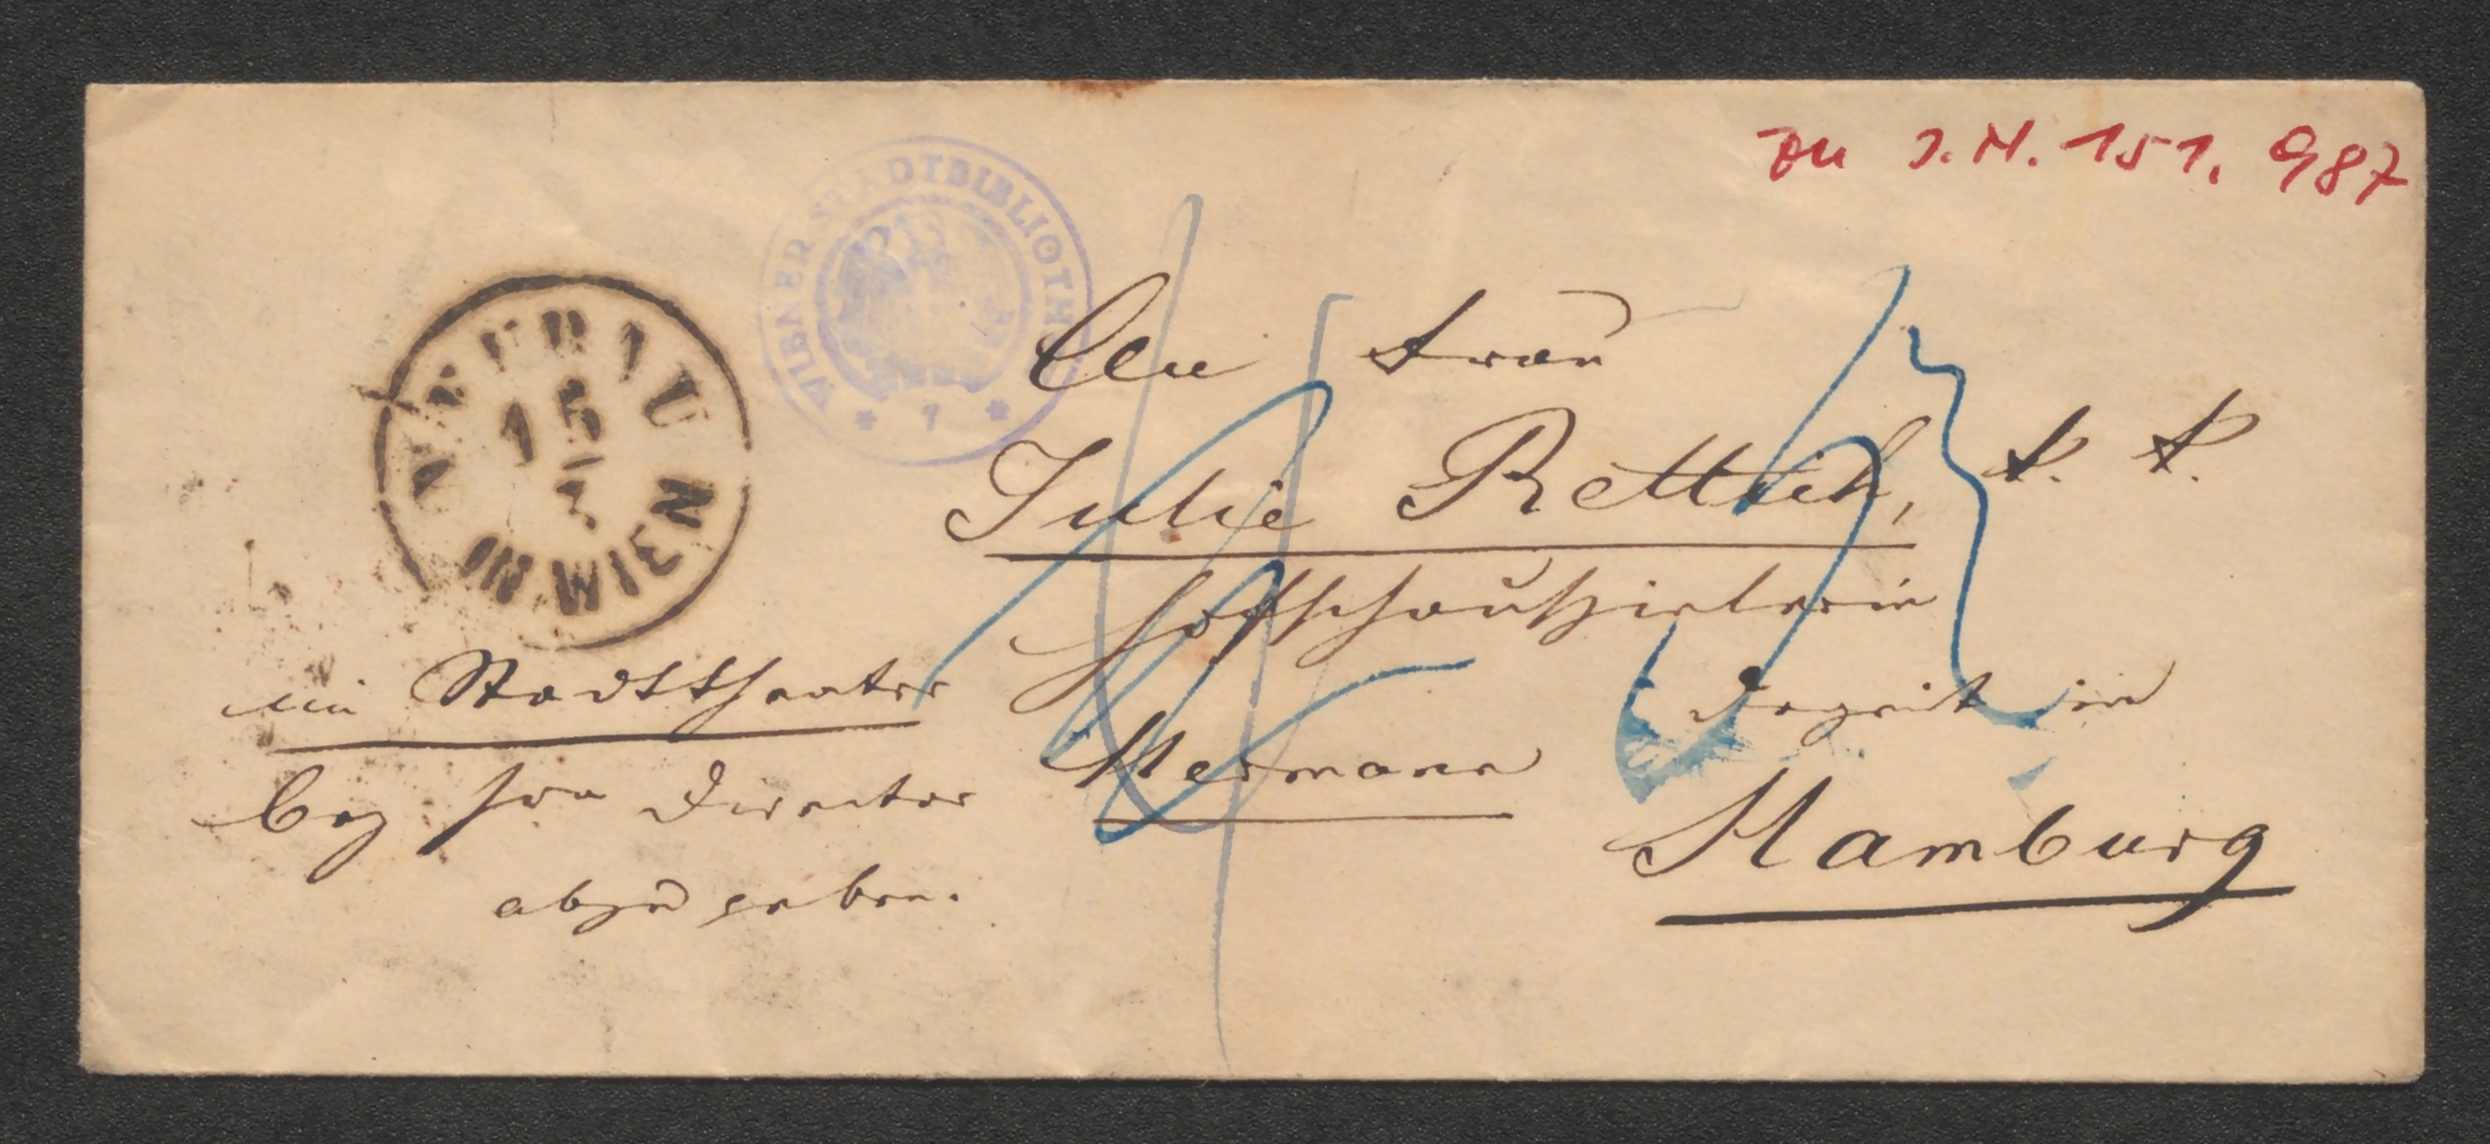 zu I.N. 151.987
WIENER STADTBIBLIOTHEK
* 7 *
NEUBAU
15
3
IN WIEN
An Frau
Julie Rettich, k. k.
Hofschauspielerin
derzeit in
Hamburg
im Stadttheater
bey Hrn Director
Hermann
abzugeben.